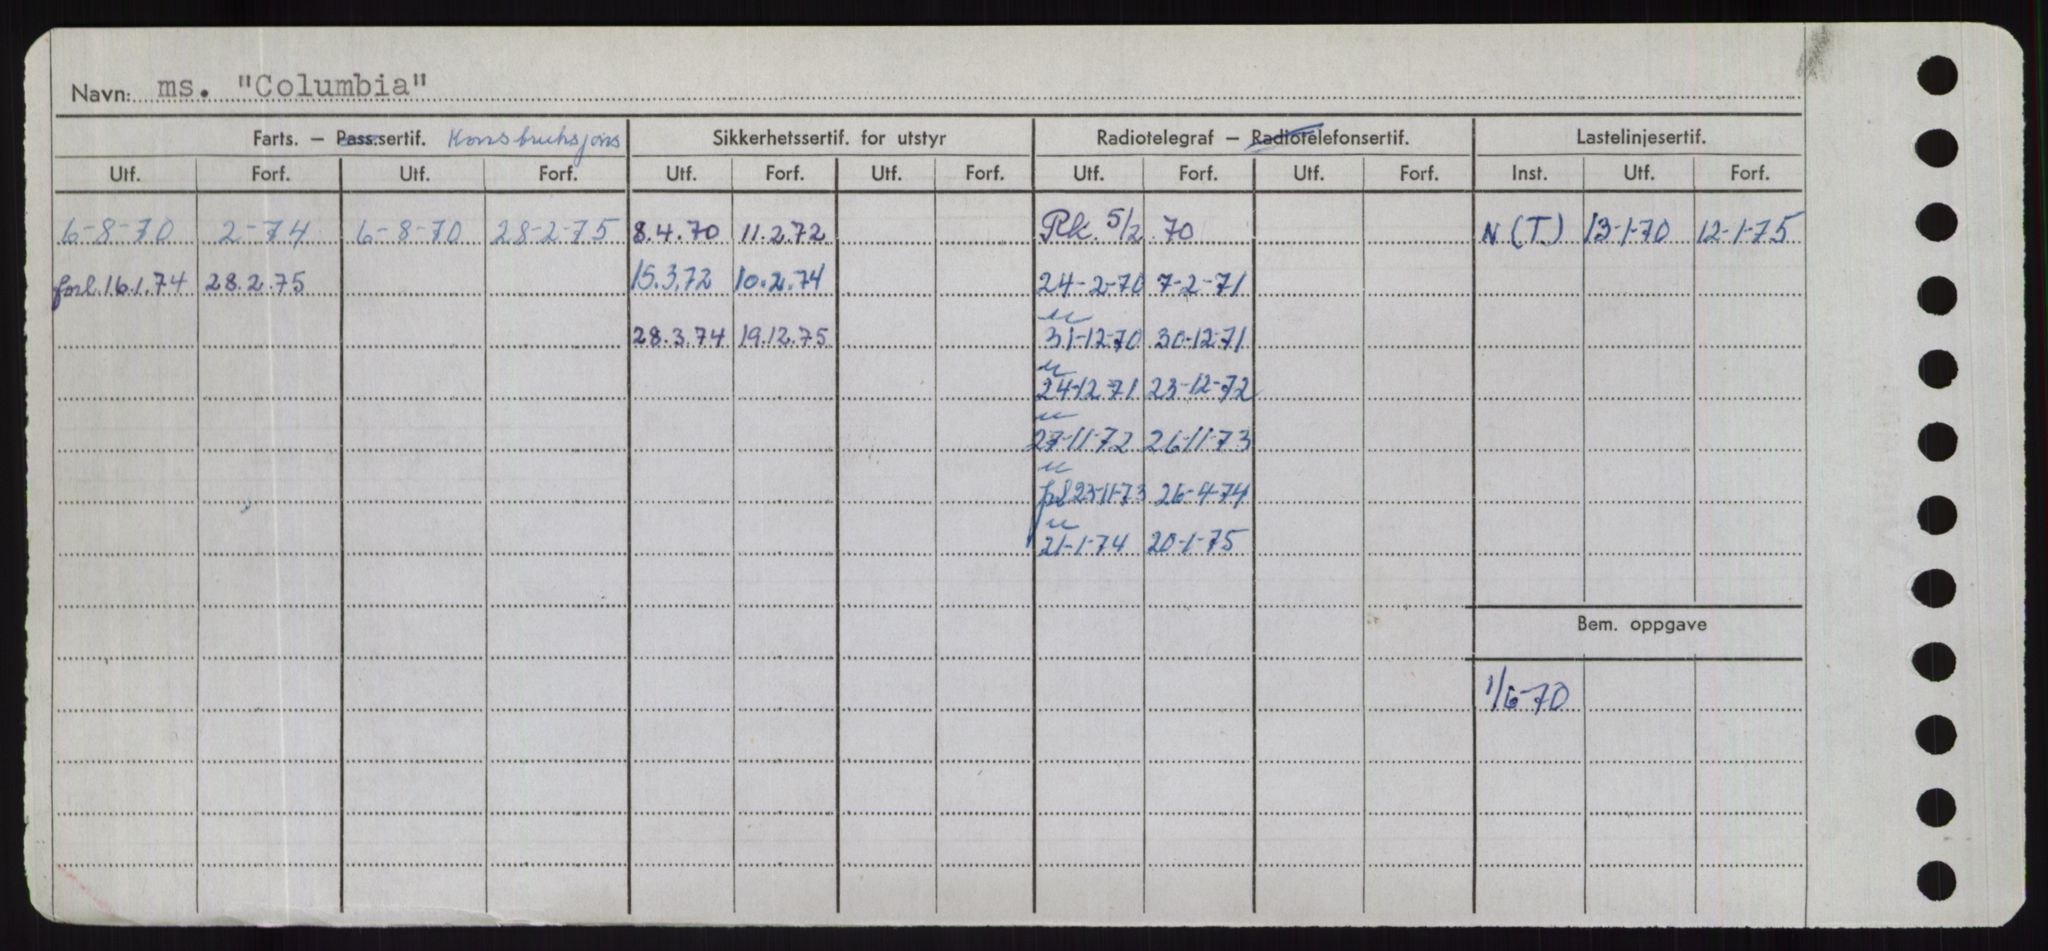 Navn: ms. "Columbia"
Farts. — Pass.sertif. Konstruksjons Sikkerhetssertif. for utstyr Radiotelegraf — Radiotelefonsertif. Lastelinjesertif.
Utf. Forf. Utf. Forf. Utf. Forf. Utf. Forf. Utf. Forf. Utf. Forf. Inst. Utf. Forf.
6-8-70 2-74 6-8-70 28-2-75 8.4.70 11.2.72 Rk. 5/2.70 N (T.) 13-1-70 12-1-75
forl.16.1.74 28.2.75 15.3.72 10.2.74 24-2-70 7-2-71
28.3.74 19.12.75 31-12-70 30-12-71
24-12-71 23-12-72
27-11-72 26-11-73
23-11-73 26-4-74
21-1-74 20-1-75
Bem. oppgave
1/6-70